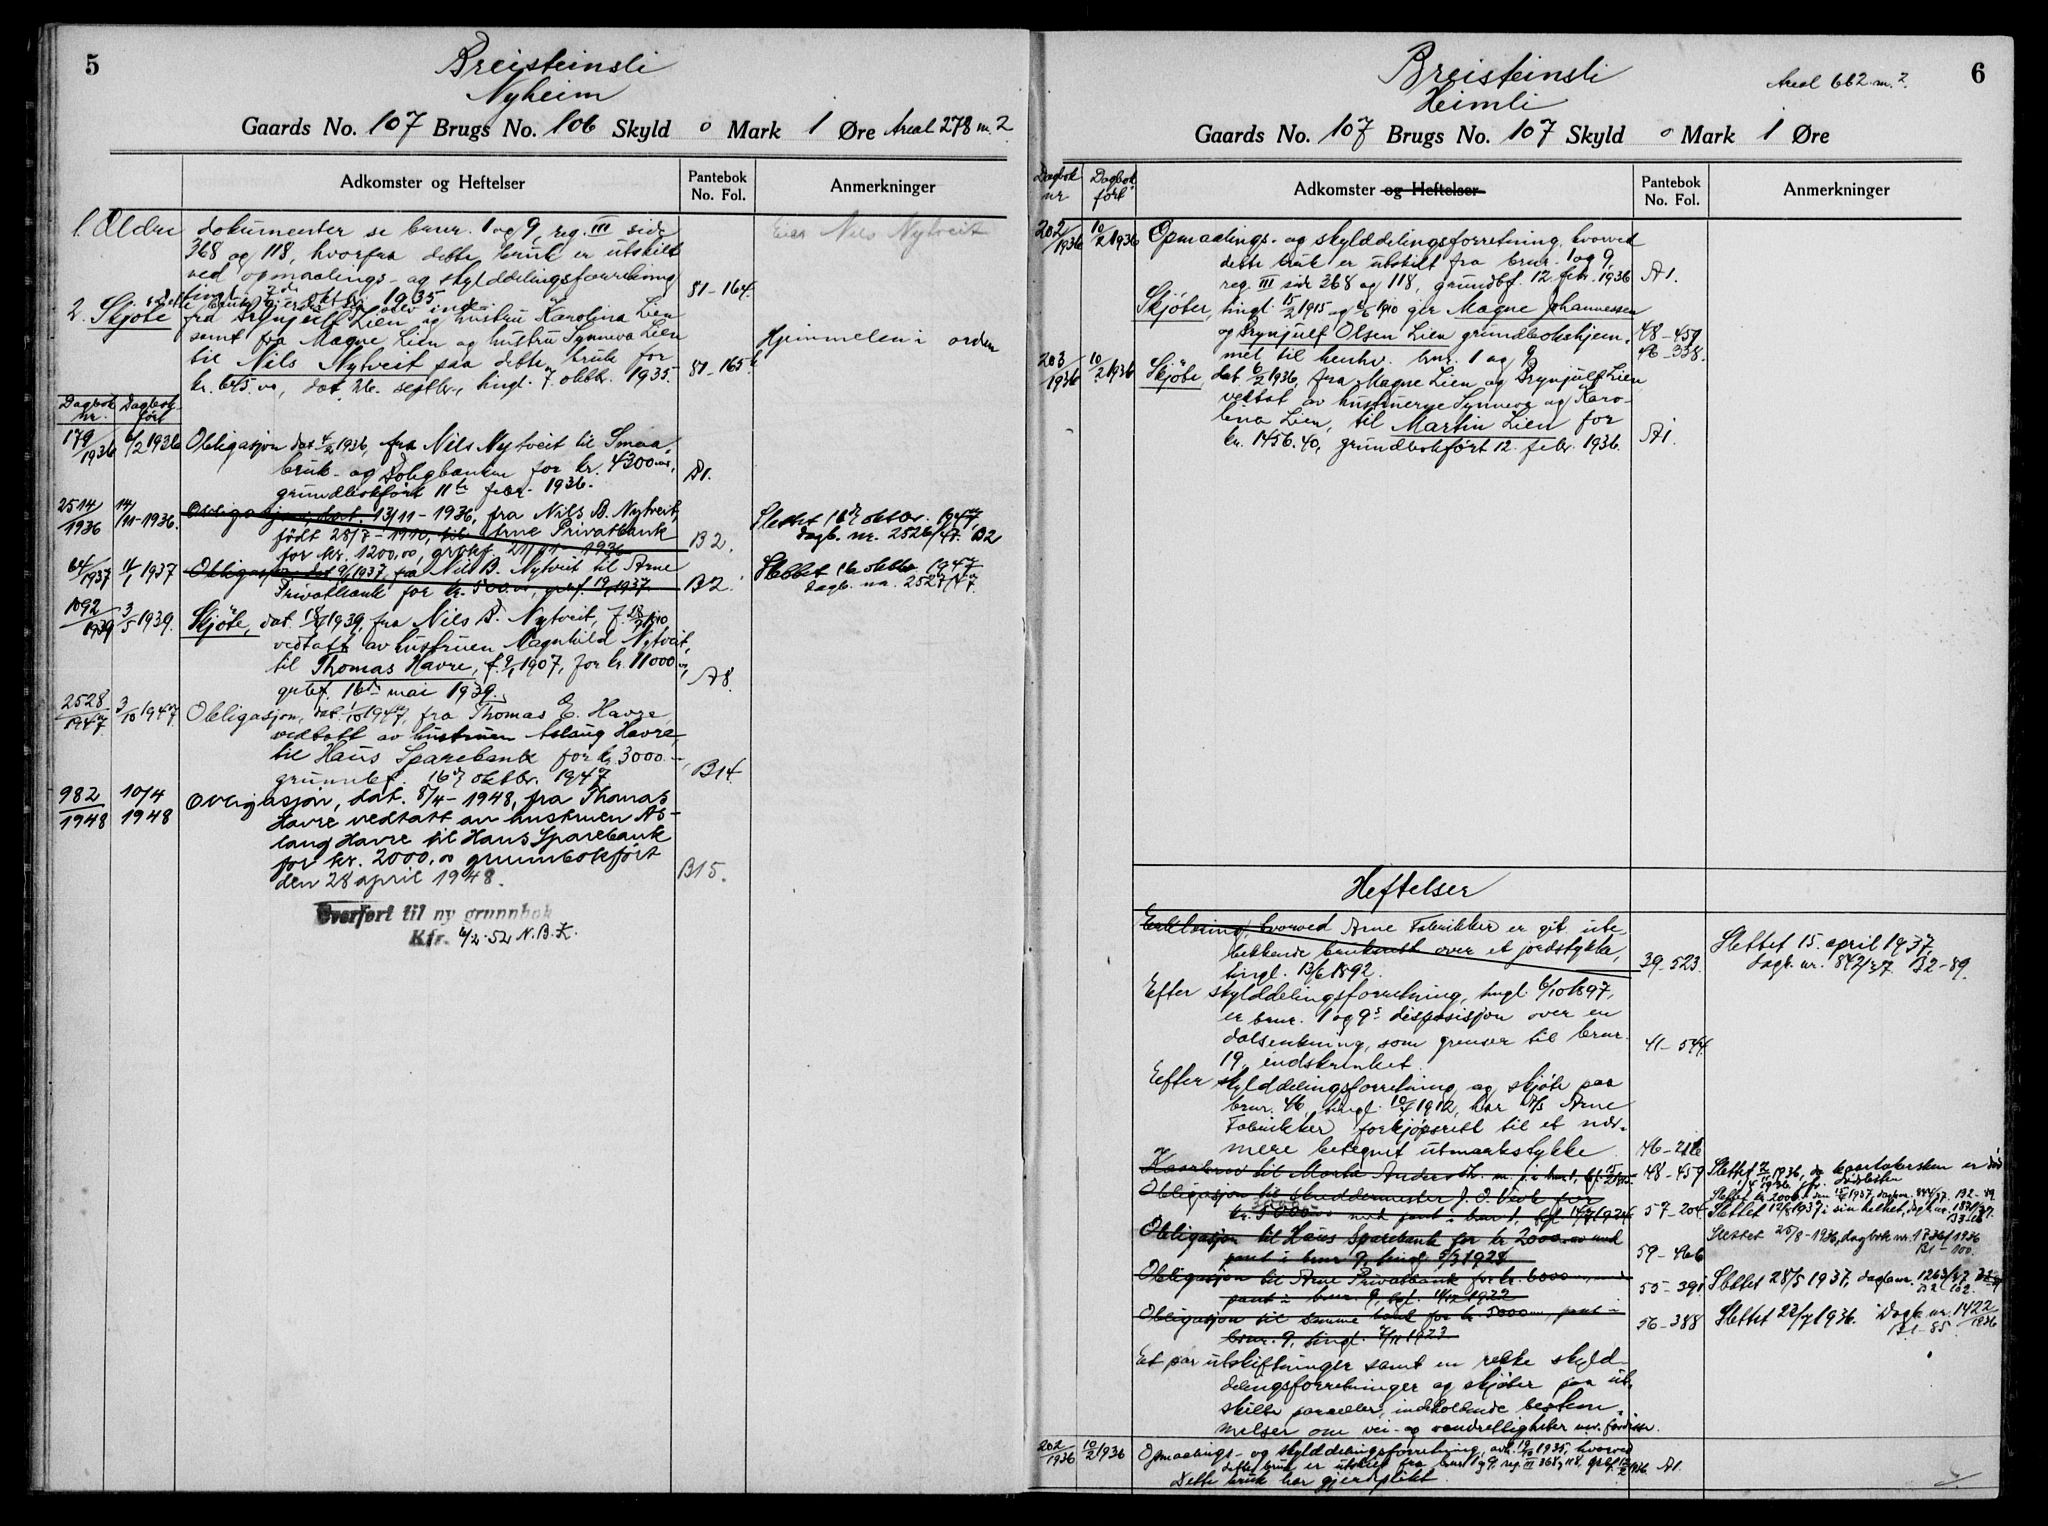 5
Breisteinsli
Nyheim
Gaards No. 107 Brugs No. 106 Skyld 0 Mark 1 Øre Areal 278 m.2
Adkomster og Heftelser
Pantebok
No. Fol.
Anmerkninger
1. Eldre dokumenter se bnr. 1 og 9, reg. III side
368 og 118, hvorfra dette bruk er utskilt
ved opmaalings- og skylddelingsforretning
tingl. 7de oktbr. 1935.
81-164.
Eier Nils Nytveit
2. Skjøte
fra Brynjulf Lien og hustru Karolina Lien
samt fra Magne Lien og hustru Synneva Lien
til Nils Nytveit paa dette bruk for
kr. 645.00, dat. 26. septbr., tingl. 7. oktbr. 1935.
81-165 b
Hjemmelen i orden
Dagbok nr.
Dagbok ført
179/1936 6/2 1936 Obligasjon dat. 4/2 1936, fra Nils Nytveit til Smaa-
bruk- og Boligbanken for kr. 4300.00,
grundbokført 11te febr. 1936.
A1.
2514/1936 14/11-1936. Obligasjon, dat. 13/11-1936, fra Nils B. Nytveit,
født 28/7-1910, til Arne Privatbank
for kr. 1200,00, grbkf. 21/11-1936
B2.
Slettet 16/ oktbr. 1947,
dagb. nr. 2526/47. B2
64/1937 11/1 1937 Obligasjon dat. 9/1 1937, fra Nils B. Nytveit til Arne
Privatbank for kr. 500.00, grbf. 19/1 1937.
B2.
Slettet 16 oktbr. 1947
dagb. nr. 2527/47.
1092/1939 3/5 1939. Skjøte, dat. 18/4 1939, fra Nils B. Nytveit, f. 28/7 1910
vedtatt av hustruen Magnhild Nytveit,
til Thomas Havre, f. 9/1 1907, for kr. 11000.00,
grbf. 16de mai 1939.
A8.
2528/1947 3/10 1947 Obligasjon, dat. 1/10 1947, fra Thomas E. Havre,
vedtatt av hustruen Aslaug Havre,
til Haus Sparebank for kr. 3000.-,
grunnbf. 16/ oktbr. 1947
B14.
982/1948 10/4 1948 Obligasjon, dat. 8/4-1948, fra Thomas
Havre vedtatt av hustruen As-
laug Havre til Haus Sparebank
for kr. 2000,00 grunnbokført
den 28 april 1948.
B15.
Overført til ny grunnbok
Kfr. 6/2-52 N.B.K.
6
Breisteinsli
Heimli
Areal 662 m.2
Gaards No. 107 Brugs No. 107 Skyld 0 Mark 1 Øre
Dagbok nr
Dagbok ført
Adkomster og Heftelser
Pantebok
No. Fol.
Anmerkninger
202/1936 10/2 1936 Opmaalings- og skylddelingsforretning, hvorved
dette bruk er utskilt fra bnr. 1 og 9,
reg. III side 368 og 118, grundbf. 12. febr. 1936
A1.
Skjøter, tingl. 15/2 1915 og 6/6 1910 gir Magne Johannessen
og Brynjulf Olsen Lien grundbokshjem-
mel til henhv. bnr. 1 og 9.
48-459
46-338.
203/1936 10/2 1936 Skjøte, dat. 6/2 1936, fra Magne Lien og Brynjulf Lien,
vedtat av hustruerne Synneva og Karo-
lina Lien, til Martin Lien for
kr. 1456.40, grundbokført 12. febr. 1936.
A1.
Heftelser
Erklæring, hvorved Arne Fabrikker er git ute-
lukkende bruksrett over et jordstykke,
tingl. 13/6 1892.
39-523.
Slettet 15. april 1937,
dagb. nr. 842/37. B2-89.
Efter skylddelingsforretning, tingl. 6/10 1897,
er bnr. 1 og 9s disposisjon over en
dalsenkning, som grenser til bnr.
19, indskrenket.
41-544.
Efter skylddelingsforretning og skjøte paa
bnr. 46, tingl. 10/ 1912, har A/S Arne
Fabrikker forkjøpsrett til et nær-
mere betegnet utmarksstykke
46-216
Kaarbrev til Marta Andersdtr. m. p. i bnr. 1,
48-459
Slettet 1936, da kaartakersken er død
Obligasjon til Buddermester J. O. Vevle for
kr. 5000.00 med pant i bnr. 1, tgl. 14/7 1924
57-204
Slettet 12/ 1937 i sin helhet, dagb. nr. 1821/37.
B3-16
Obligasjon til Haus Sparebank for kr. 2000.00 med
pant i bnr. 9, tingl. 5/3 1928
59-466
Slettet 25/8-1936, dagbok nr. 1736/1936
B1-100.
Obligasjon til Arne Privatbank for kr. 6000.-, med
pant i bnr. 9, tgl. 4/12 1922
55-391
Slettet 28/5 1937, dagb.nr. 1263/37
B2-162.
Obligasjon til samme bank for kr. 5000.-, pant i
bnr. 9, tingl. 7/11 1923
56-388
Slettet 22/7 1936. Dagb. nr. 1422/1936
B1-85.
Et par utskiftninger samt en rekke skyld-
delingsforretninger og skjøter paa ut-
skilte parceller, indeholdende bestem-
melser om vei- og vandrettigheter
202/1936 10/2 1936 Opmaalings- og skylddelingsforretning, avh. 19/10 1935, hvorved
dette bruk er utskilt fra bnr. 1 og 9, reg. III 368 og 118, grbf. 12/2 1936. A1.
Dette bruk har gjerdeplikt.